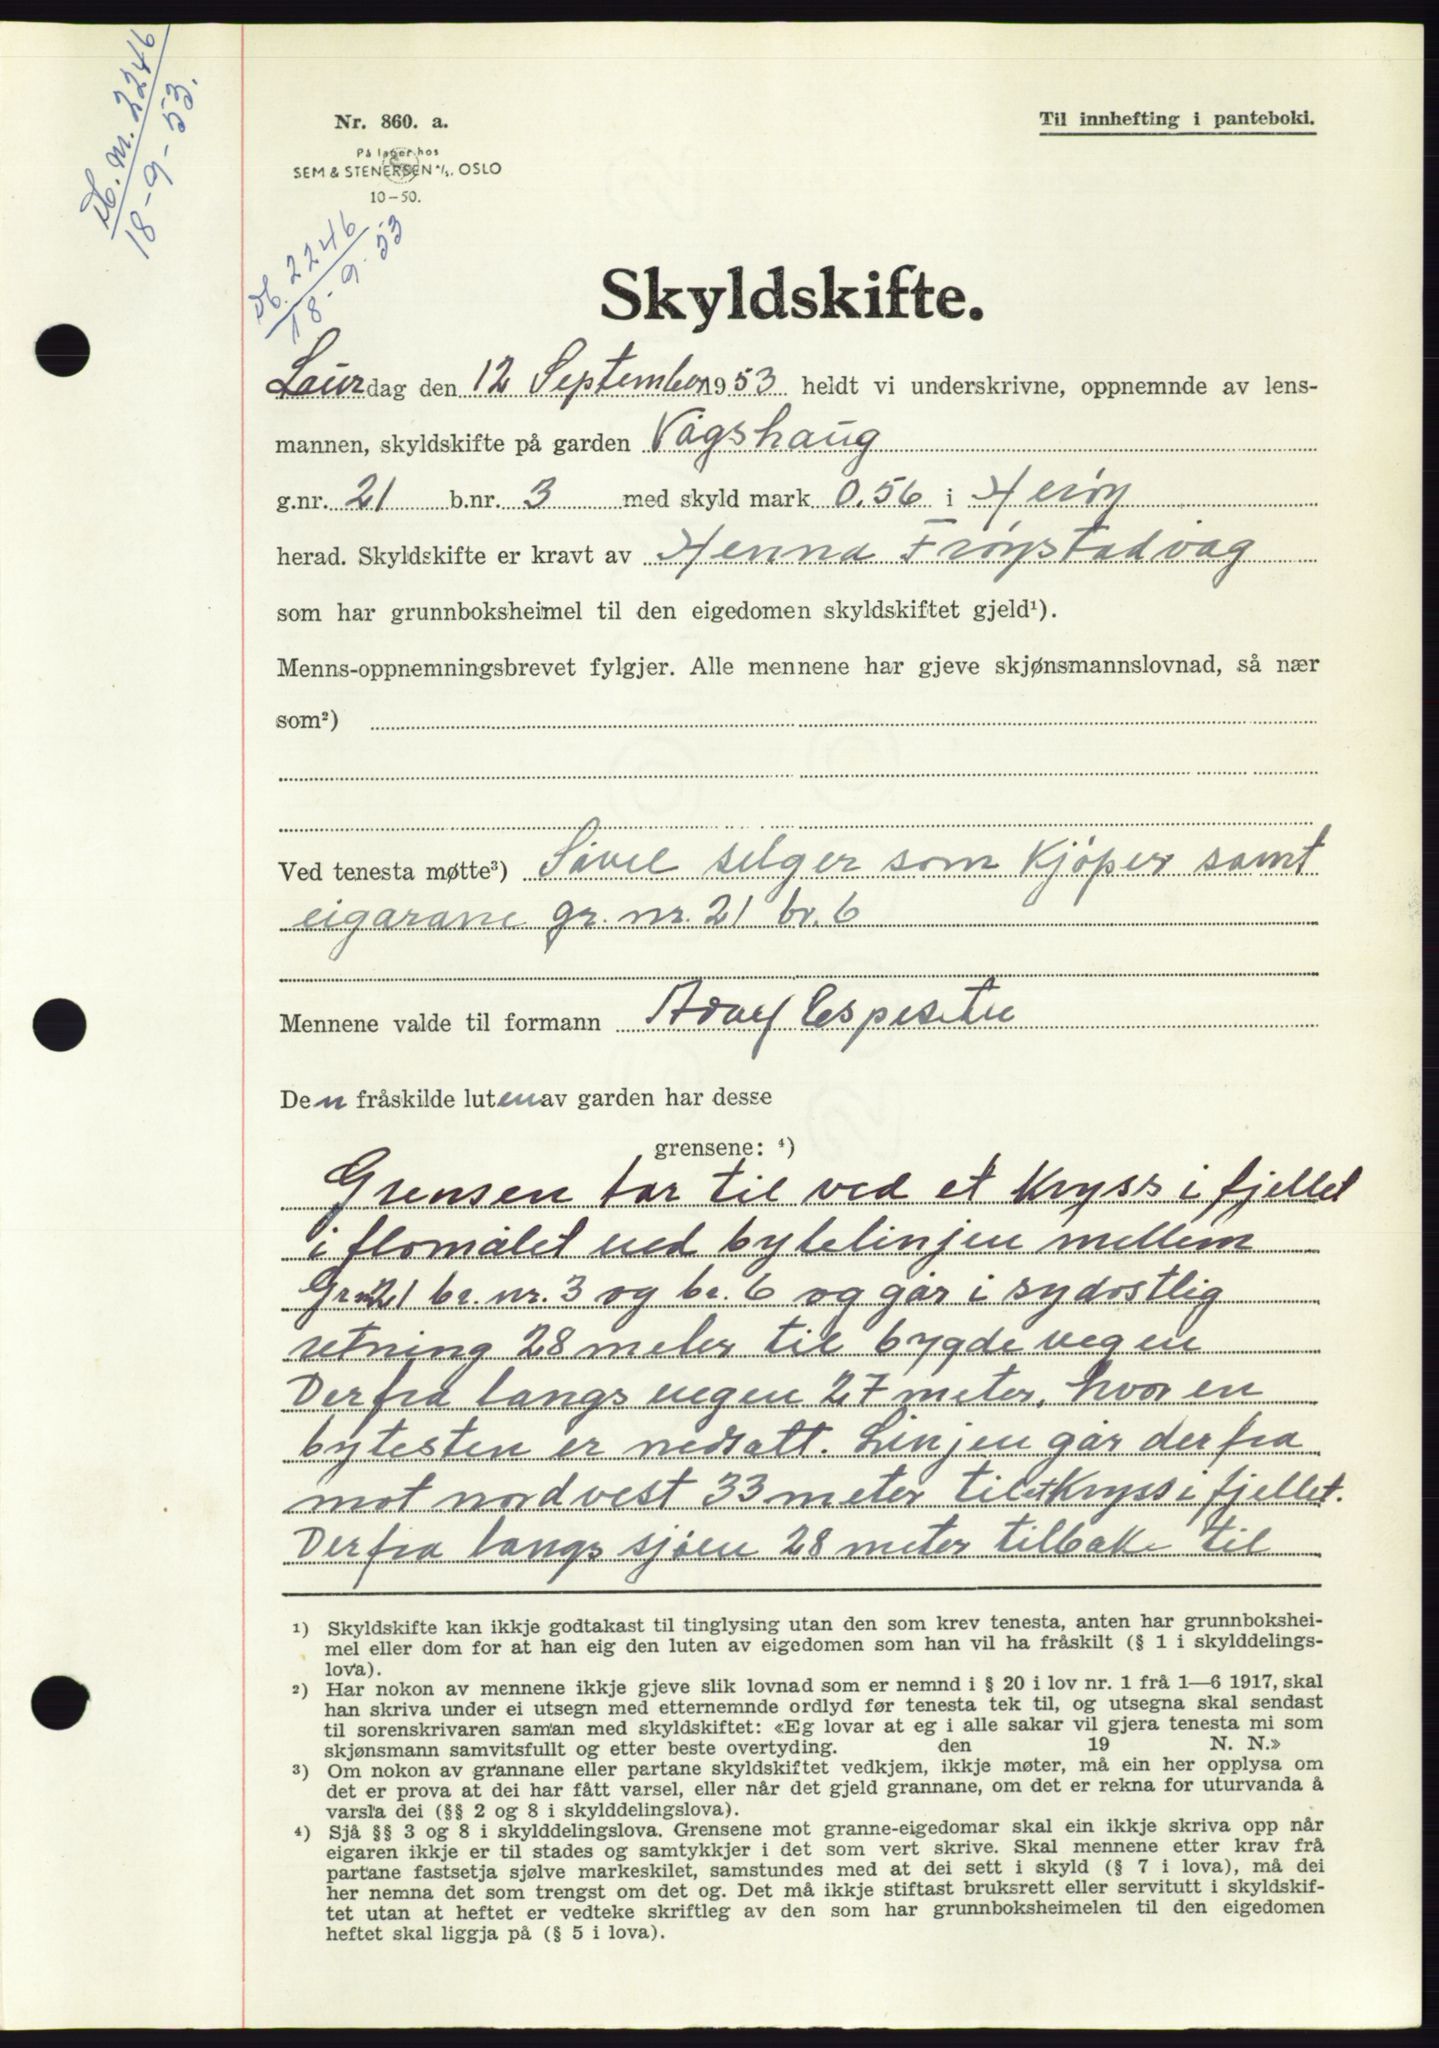 Db. nr. 2246
18-9-53.
Nr. 860. a.
Til innhefting i panteboki.
På lager hos
SEM & STENERSEN A/S, OSLO
10-50.
Db. 2246
18-9-53
Skyldskifte.
Laurdag den 12 September 1953 heldt vi underskrivne, oppnemnde av lens-
mannen, skyldskifte på garden Vågshaug
g.nr. 21 b.nr. 3 med skyld mark 0.56 i Herøy
herad. Skyldskifte er kravt av Henna Frøystadvåg
som har grunnboksheimel til den eigedomen skyldskiftet gjeld¹).
Menns-oppnemningsbrevet fylgjer. Alle mennene har gjeve skjønsmannslovnad, så nær
som²)
Ved tenesta møtte³) Såvel selger som kjøper samt
eigarane gr. nr. 21 br. 6
Mennene valde til formann Adolf Espeseter
Den fråskilde luten av garden har desse
grensene: ⁴)
Grensen tar til ved et kryss i fjellet
i flomålet ved bytelinjen mellem
Gr nr 21 br. nr. 3 og br. 6 og går i sydostlig
retning 28 meter til bygdevegen
Derfra langs vegen 27 meter, hvor en
bytesten er nedsatt. Linjen går derfra
mot nordvest 33 meter til et kryss i fjellet.
Derfra langs sjøen 28 meter tilbake til
¹) Skyldskifte kan ikkje godtakast til tinglysing utan den som krev tenesta, anten har grunnbokshei-
mel eller dom for at han eig den luten av eigedomen som han vil ha fråskilt (§ 1 i skylddelings-
lova).
²) Har nokon av mennene ikkje gjeve slik lovnad som er nemnd i § 20 i lov nr. 1 frå 1—6 1917, skal
han skriva under ei utsegn med etternemnde ordlyd før tenesta tek til, og utsegna skal sendast
til sorenskrivaren saman med skyldskiftet: «Eg lovar at eg i alle sakar vil gjera tenesta mi som
skjønsmann samvitsfullt og etter beste overtyding. den 19 N. N.»
³) Om nokon av grannane eller partane skyldskiftet vedkjem, ikkje møter, må ein her opplysa om
det er prova at dei har fått varsel, eller når det gjeld grannane, om det er rekna for uturvanda å
varsla dei (§§ 2 og 8 i skylddelingslova).
⁴) Sjå §§ 3 og 8 i skylddelingslova. Grensene mot granne-eigedomar skal ein ikkje skriva opp når
eigaren ikkje er til stades og samtykkjer i det som vert skrive. Skal mennene etter krav frå
partane fastsetja sjølve markeskilet, samstundes med at dei sett i skyld (§ 7 i lova), må dei
her nemna det som trengst om det og. Det må ikkje stiftast bruksrett eller servitutt i skyldskif-
tet utan at heftet er vedteke skriftleg av den som har grunnboksheimelen til den eigedomen
heftet skal liggja på (§ 5 i lova).